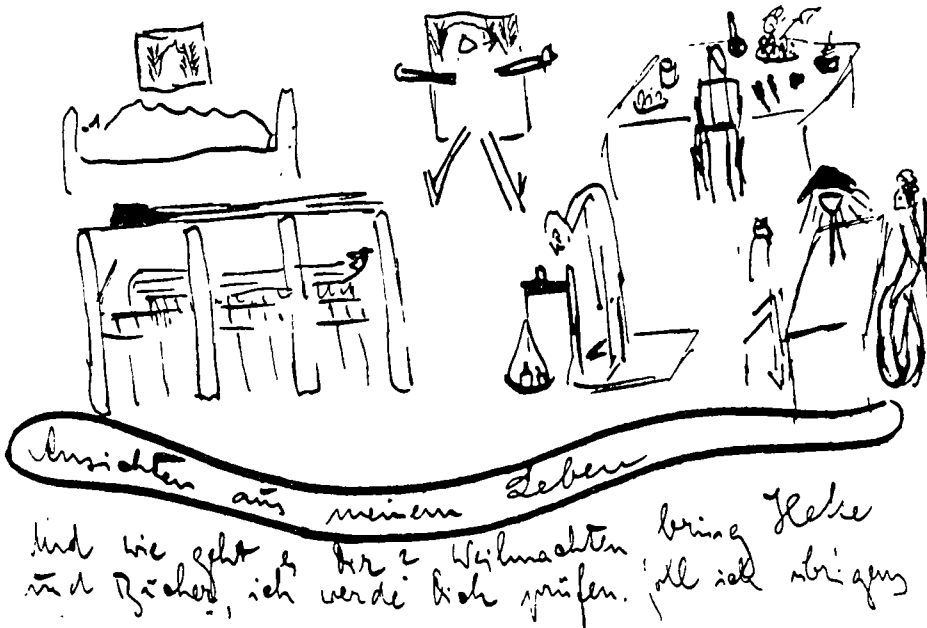 Ansichten aus meinem Leben
Und wie geht es Dir? Weihnachten bring Hefte
und Bücher, ich werde Dich prüfen. Soll ich übrigens